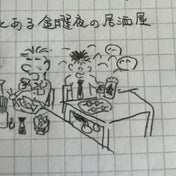 とある金曜夜の居酒屋